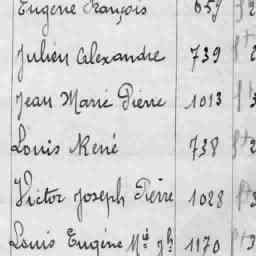 Eugène François 659
Julien Alexandre 739
Jean Marie Pierre 1013
Louis René 738
Victor Joseph Pierre 1028
Louis Eugène Mie Jh 1170